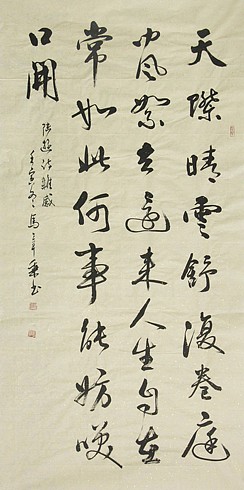 天際晴雲舒復卷庭
中風絮去還來人生自在
常如此何事能妨咲
口開
陸遊詩雜感
壬寅冬馬書